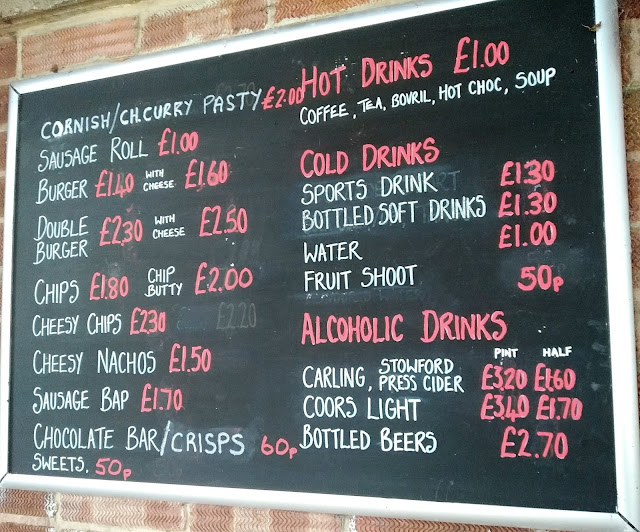 CORNISH/CH.CURRY PASTY £2.00
SAUSAGE ROLL £1.00
BURGER £1.40 WITH CHEESE £1.60
DOUBLE BURGER £2.30 WITH CHEESE £2.50
CHIPS £1.80 CHIP BUTTY £2.00
CHEESY CHIPS £2.30 £2.20
CHEESY NACHOS £1.50
SAUSAGE BAP £1.70
CHOCOLATE BAR/CRISPS 60p
SWEETS. 50p
HOT DRINKS £1.00
COFFEE, TEA, BOVRIL, HOT CHOC, SOUP
COLD DRINKS
SPORTS DRINK £1.30
BOTTLED SOFT DRINKS £1.30
WATER £1.00
FRUIT SHOOT 50p
ALCOHOLIC DRINKS
PINT HALF
CARLING, STOWFORD PRESS CIDER £3.20 £1.60
COORS LIGHT £3.40 £1.70
BOTTLED BEERS £2.70